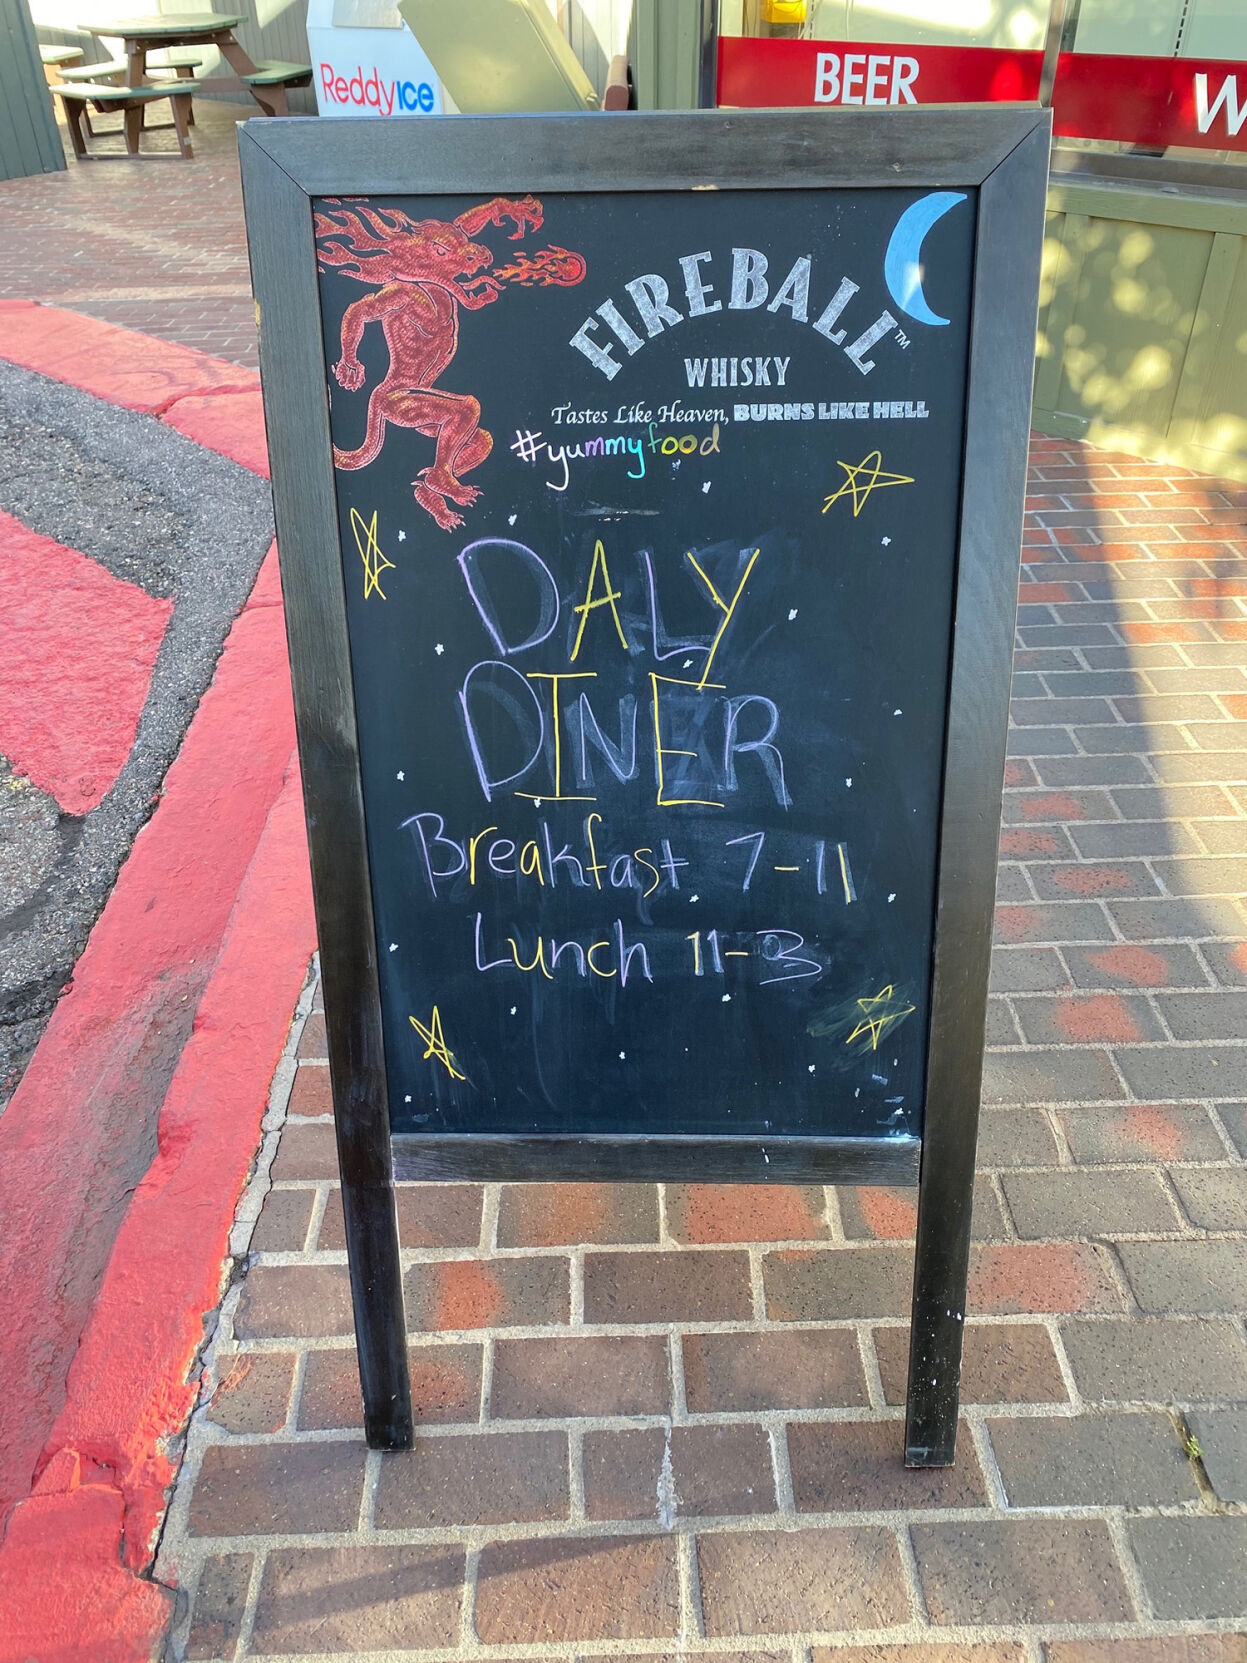 Reddyice
BEER
W
FIREBALL™
WHISKY
Tastes Like Heaven, BURNS LIKE HELL
#yummyfood
DALY
DINER
Breakfast 7-11
Lunch 11-3